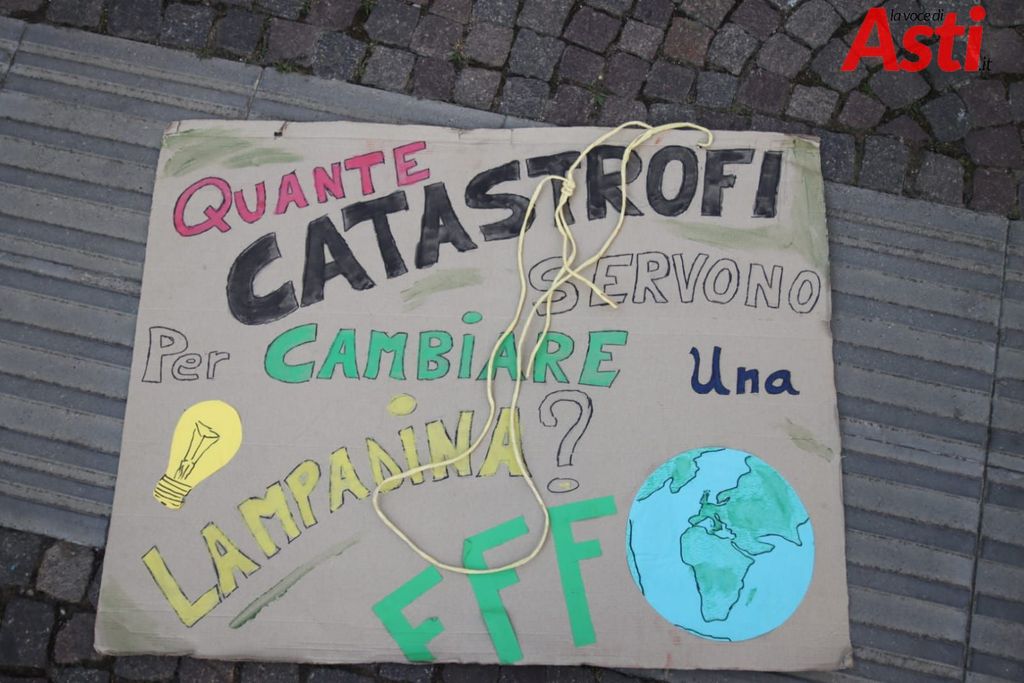 la voce di
Asti
.it
QUANTE
CATASTROFI
SERVONO
Per CAMBiARE Una
LAMPADiNA?
FFF